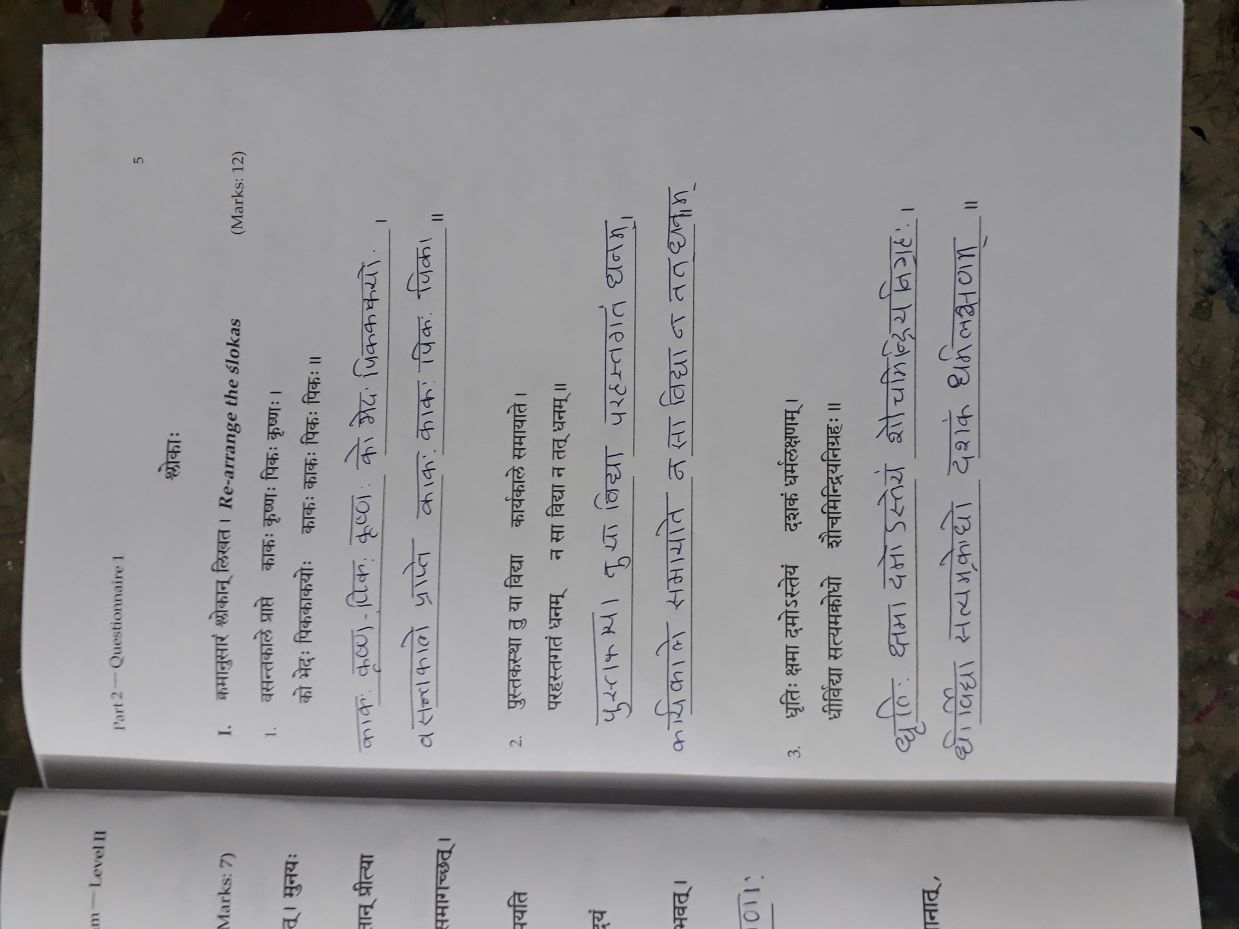 m — Level II
Marks: 7)
त्। मुनयः
तान् प्रीत्या
समागच्छत्।
पयति
भवत्।
णाः
ानात्,
Part 2 — Questionnaire 1
5
श्लोकाः
I. क्रमानुसारं श्लोकान् लिखत। Re-arrange the ślokas (Marks: 12)
1. वसन्तकाले प्राप्ते काकः कृष्णः पिकः कृष्णः।
को भेदः पिककाकयोः काकः काकः पिकः पिकः॥
काकः कृष्ण-पिकः कृष्णः को भेदः पिकककयोः ।
वसन्तकाले प्राप्ते काकः काकः पिकः पिकः ॥
2. पुस्तकस्था तु या विद्या कार्यकाले समायाते।
परहस्तगतं धनम् न सा विद्या न तत् धनम्॥
पुस्तकस्था तु या विद्या परहस्तगतं धनम्।
कार्यकाले समायाते न सा विद्या न तत धनम् ॥
3. धृतिः क्षमा दमोऽस्तेयं दशकं धर्मलक्षणम्।
धीर्विद्या सत्यमक्रोधो शौचमिन्द्रियनिग्रहः॥
धृतिः क्षमा दमोऽस्तेयं शौचमिन्द्रियनिग्रहः ।
धीर्विद्या सत्यमक्रोधो दशकं धर्मलक्षणम् ॥